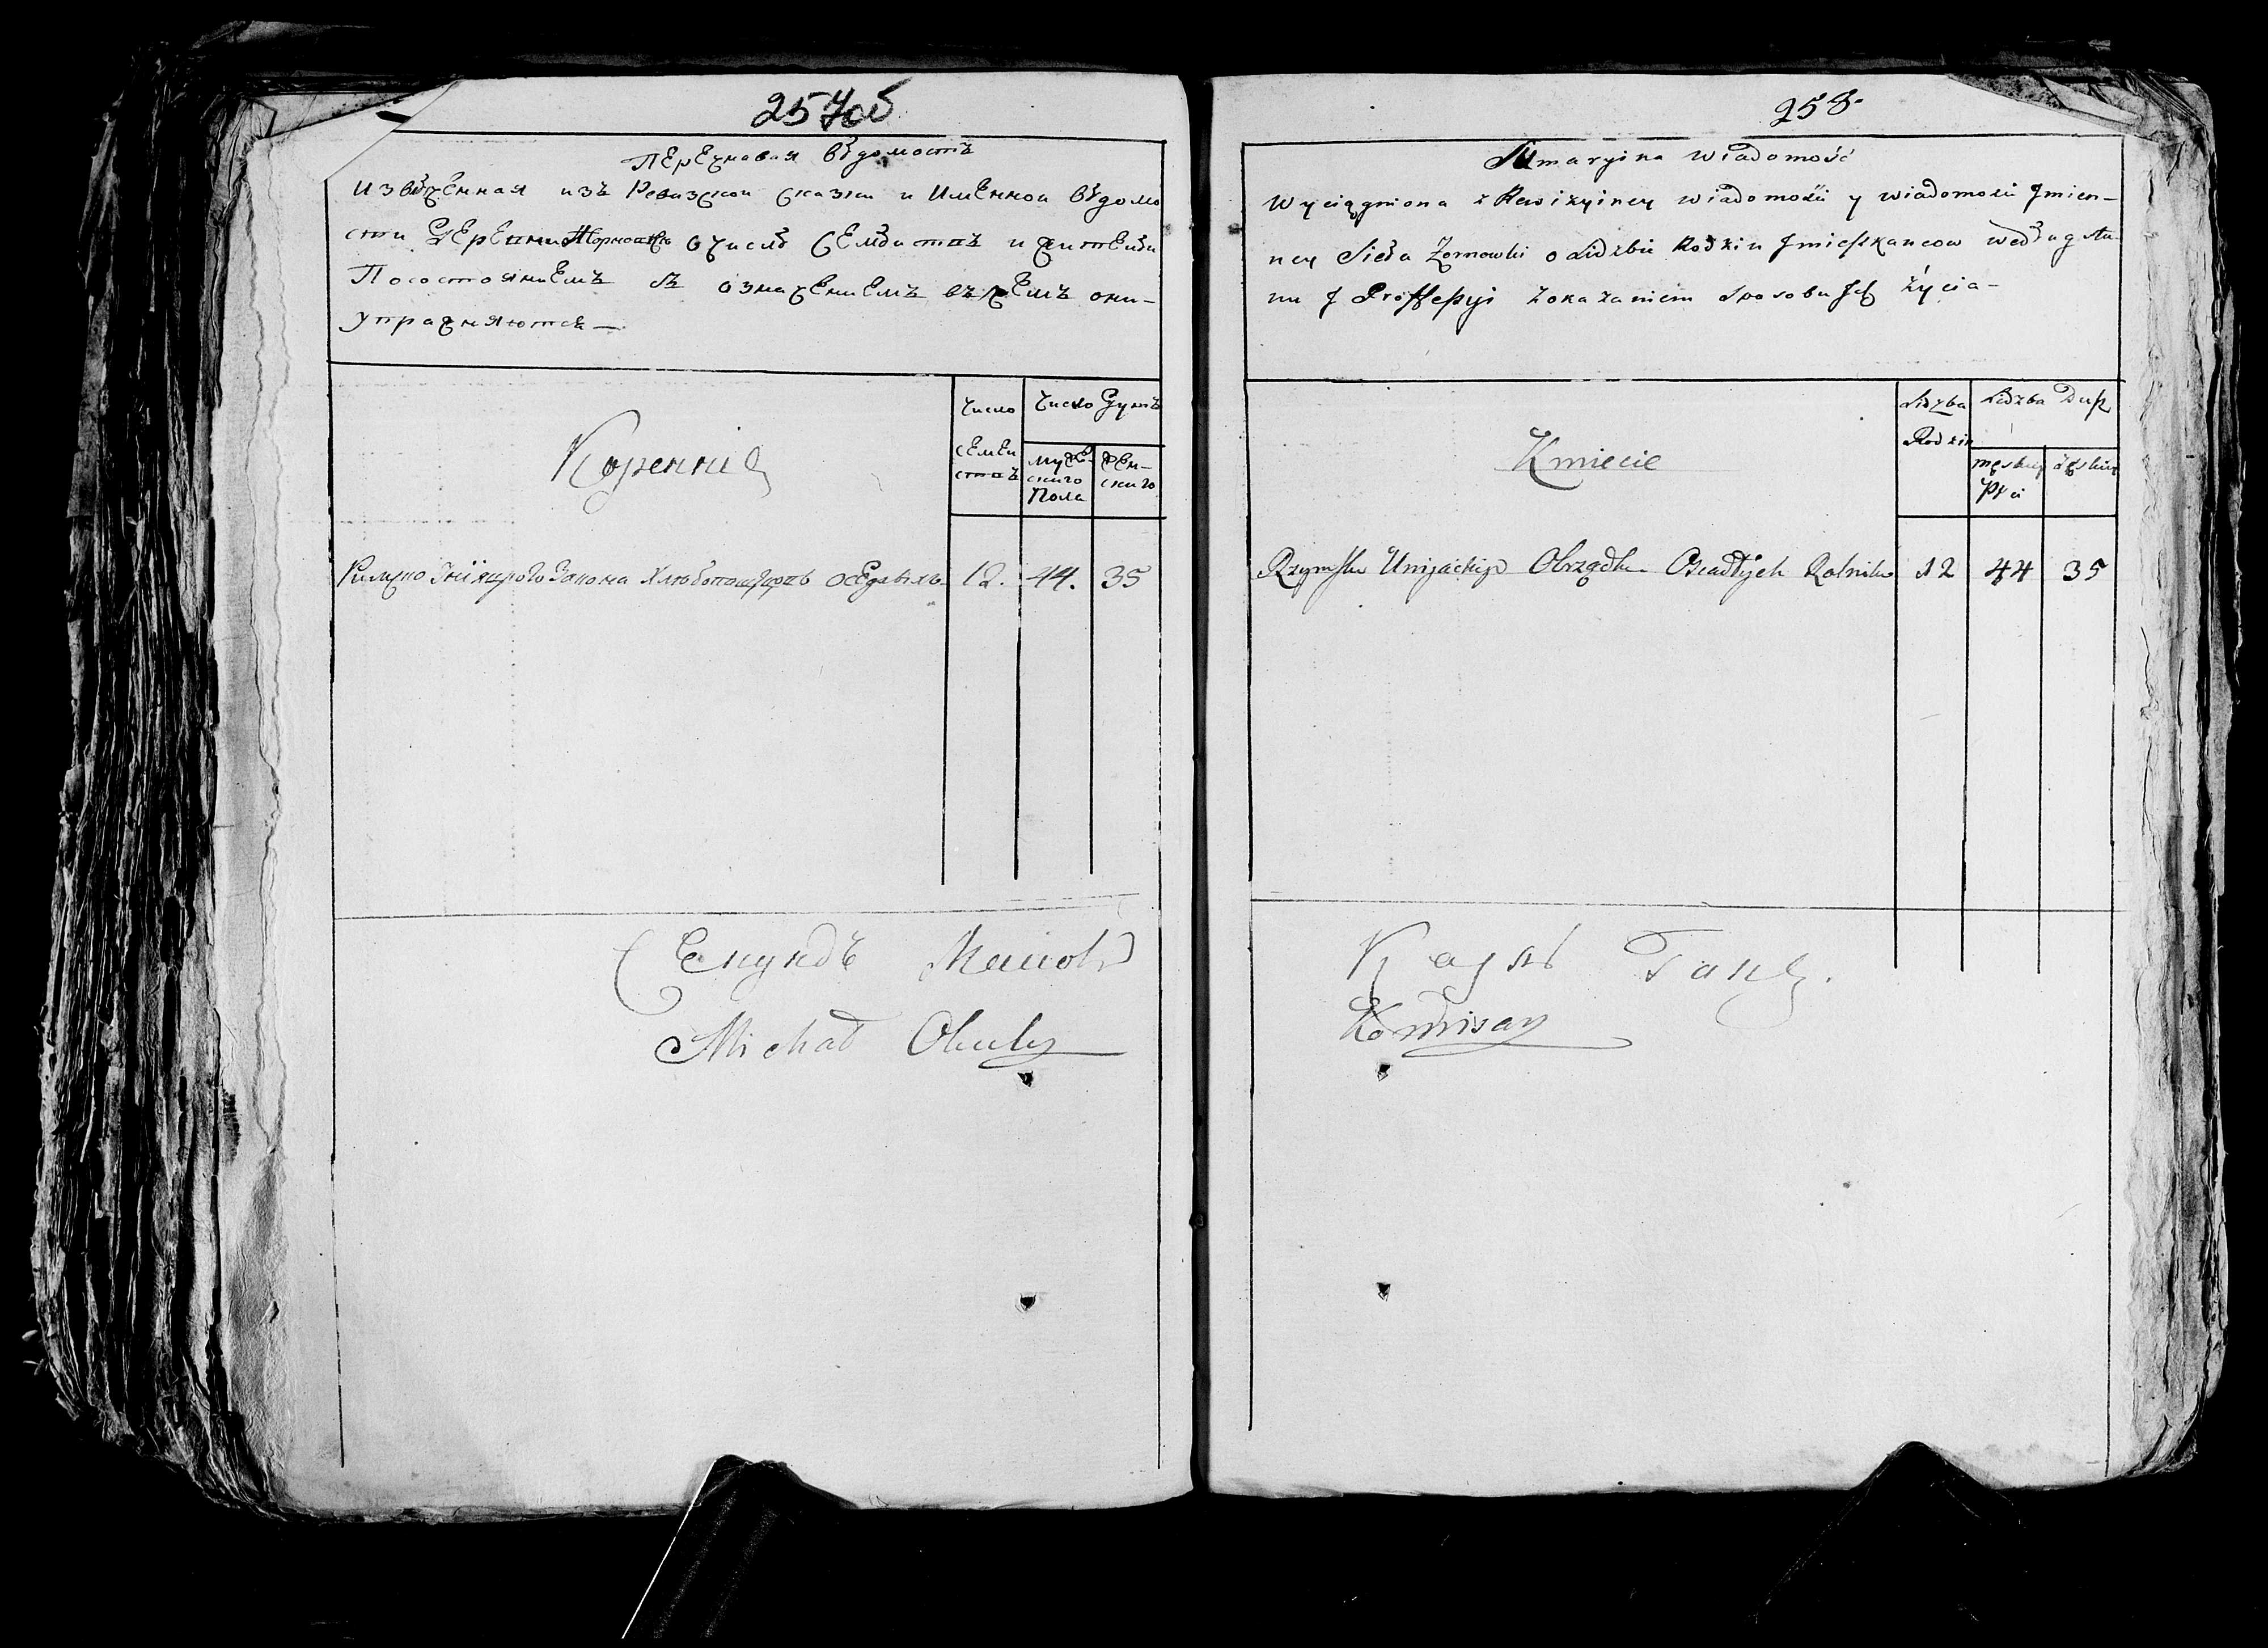 257об
Перечневая вѣдомостъ
Извлеченная изъ Ревизской сказки и Именной вѣдомо
сти Деревни Жорновки о числѣ Семействъ и жителей
По состояниемъ съ означениемъ въ чемъ они
упражняются —
Число Семействъ
Число Душъ
мужескиго Пола
женскиго
Коренние
Римско Униящкого Закона Хлебопащцовъ оседлыхъ
12. 44. 35
Секундъ
Michał
258
Sumaryina wiadomość
Wyciągniona z Rewizyiney wiadomości y wiadomości Jmien-
ney Sieła Żornowki o Lidzbie Rodzin J mieszkancow według sta-
nu J Proffessyi z okazaniem sposobu Jch życia -
Lidzba Rodzin
Lidzba Dusz
męskiey Płci
żęskiey
Kmiecie
Rzymsko Uniiackiego Obrządku Osiadłych Rolnikow 12 44 35
Komisarz